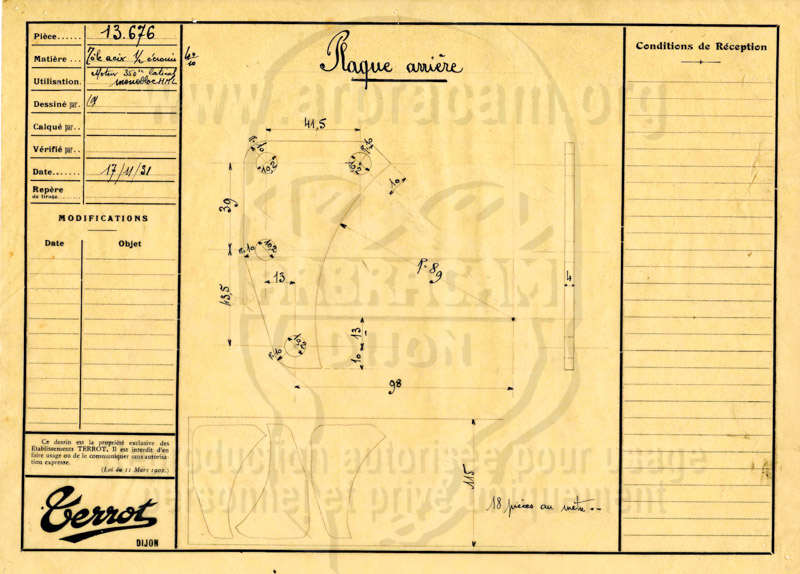 Pièce...... 13.676
Matière ... Tôle acix ½ écrouie 40/10
Utilisation. Moteur 350cc latéral
monobloc HML
Dessiné par.
Calqué par..
Vérifié par...
Date....... 17/11/31
Repère
de tirage.........
MODIFICATIONS
Date Objet
Ce dessin est la propriété exclusive des
Etablissements TERROT, Il est interdit d'en
faire usage ou de le communiquer sans autorisa-
tion expresse.
(Loi du 11 Mars 1902.)
Terrot
DIJON
Plaque arrière
41,5
R.10
10,2
R.10
10,2
10
39
R.10
10,2
13
43,5
R.10
10,2
R=89
13
10
98
4
115
18 pièces au mètre --
Conditions de Réception
www.arbracam.org
ARBRACAM
DIJON
Reproduction autorisée pour usage
personnel et privé uniquement